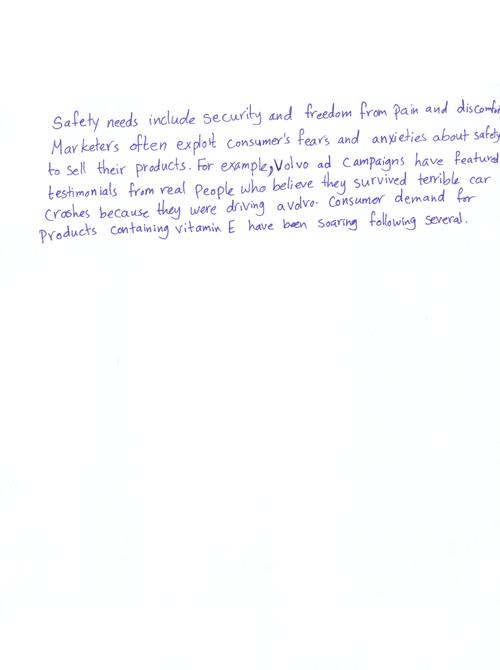 Safety needs include security and freedom from pain and discomfor
Marketers often exploit consumer's fears and anxieties about safety
to sell their products. For example, Volvo ad campaigns have featured
testimonials from real people who believe they survived terrible car
crashes because they were driving a volvo. Consumer demand for
products containing vitamin E have been soaring following several.